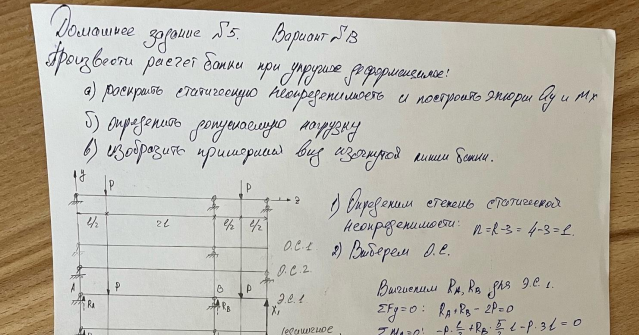 Домашнее задание №5. Вариант №В
Произвести расчет балки при упругое деформация:
а) раскрыть статическую неопределимость и построить эпюры Qy и Mx
б) определить допускаемую нагрузку
в) изобразить примерный вид изогнутой линии балки.
y
P P
z
l/2 2l l/2 l/2
О.С.1
О.С.2
A P B P Э.С.1
RA RB X1
1) Определим степень статической
неопределимости: n=R-3=4-3=1.
2) Выберем О.С.
Вычислим RA, RB для Э.С.1.
ΣFy=0: RA+RB-2P=0
-P·l/2+RB·5/2 l-P·3l=0